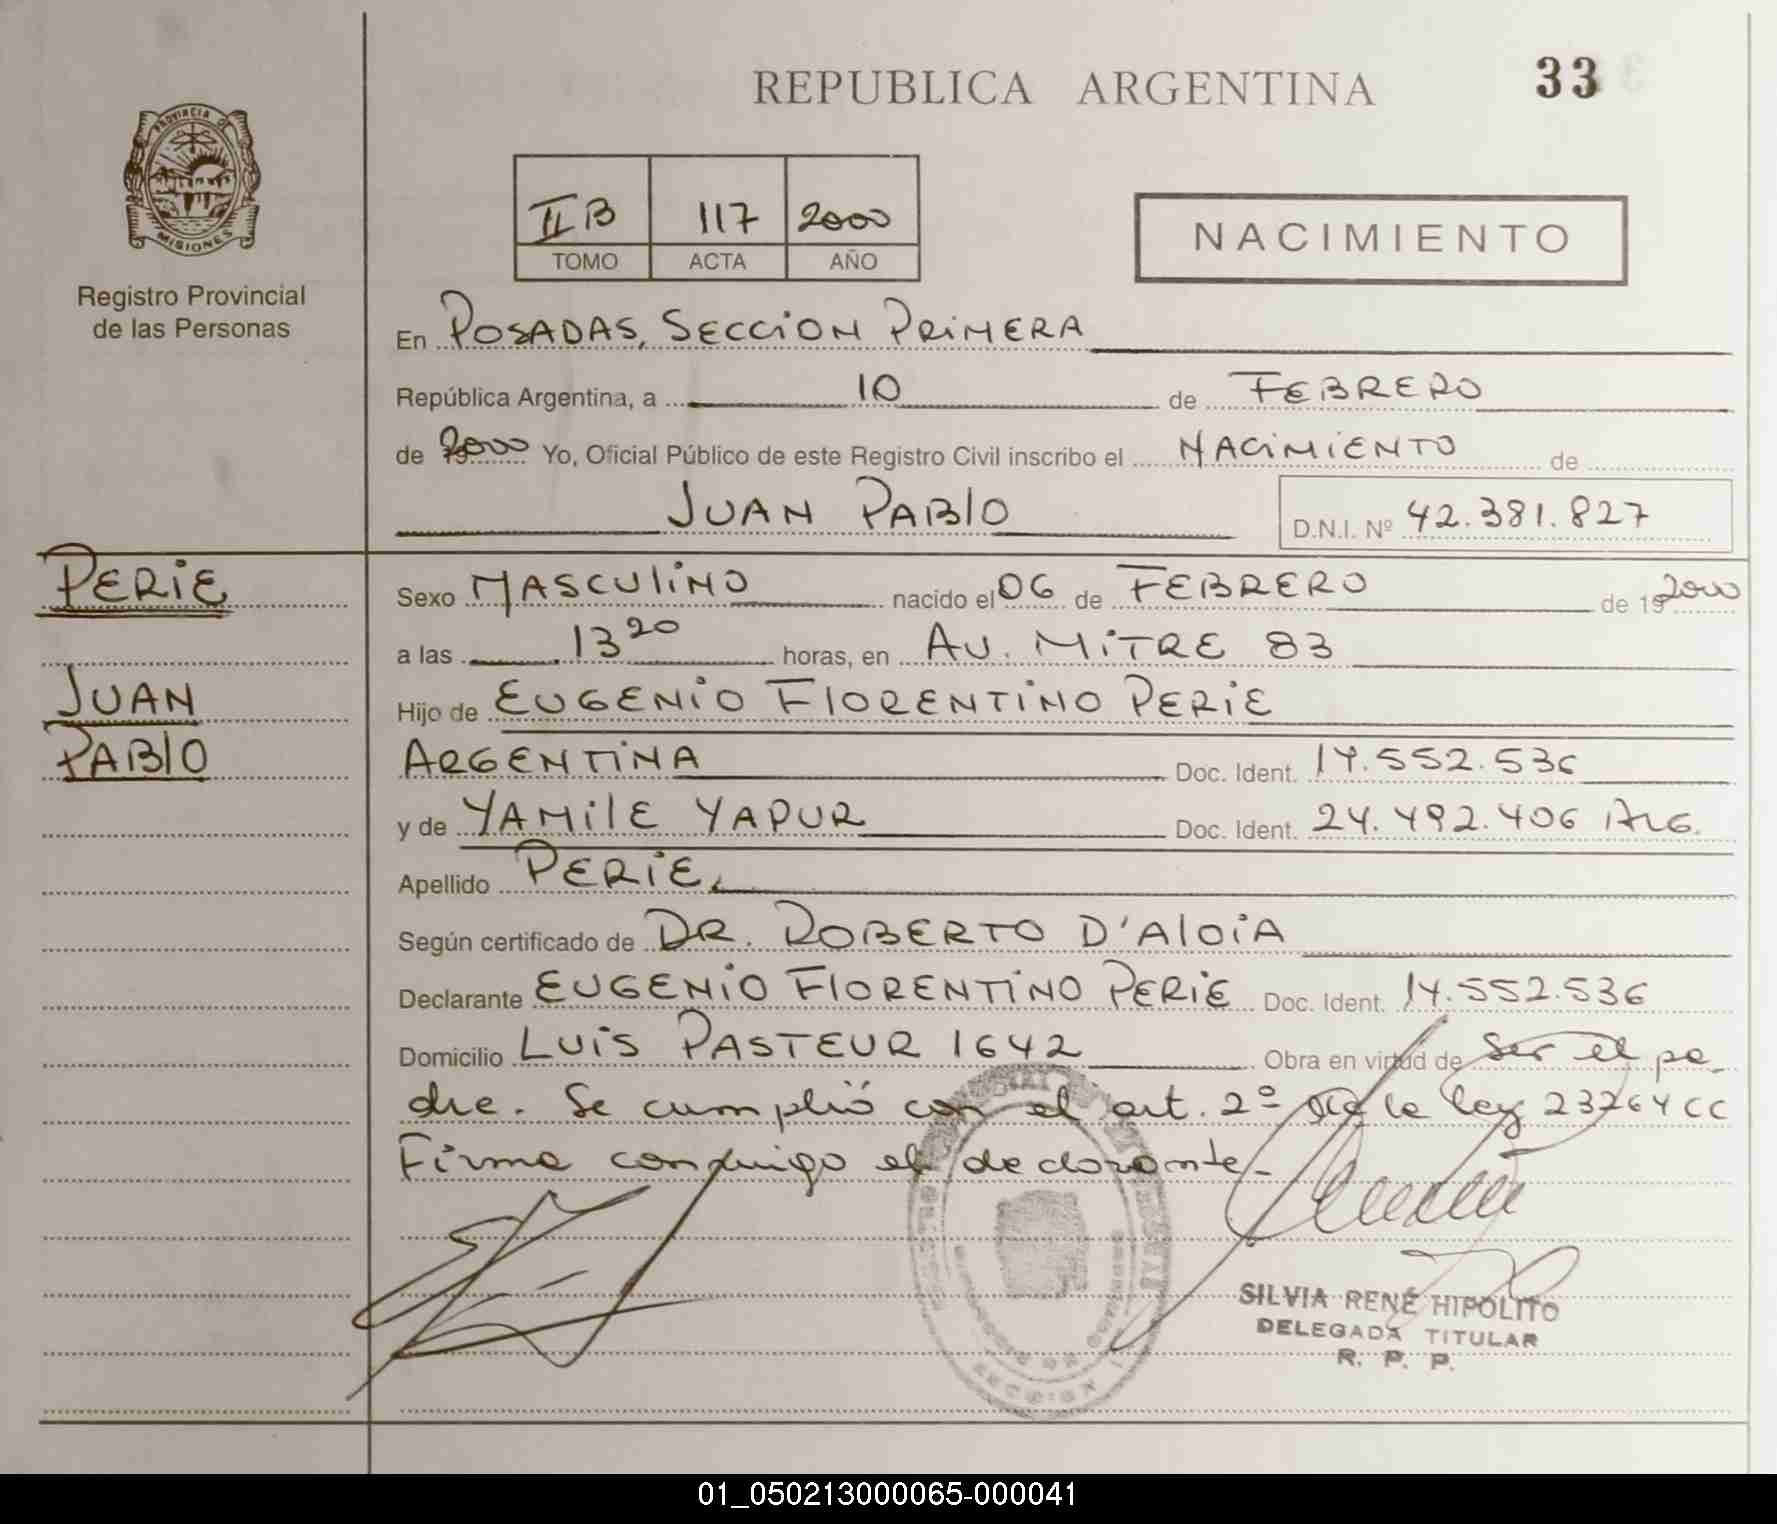 REPUBLICA ARGENTINA
33
PROVINCIA DE
MISIONES
Registro Provincial
de las Personas
II B 117 2000
TOMO ACTA AÑO
NACIMIENTO
En POSADAS, SECCION PRIMERA
República Argentina, a 10 de FEBRERO
de 2000 Yo, Oficial Público de este Registro Civil inscribo el NACIMIENTO de
JUAN PABLO D.N.I. Nº 42.381.827
PERIE
JUAN
PABLO
Sexo MASCULINO nacido el 06 de FEBRERO de 19 2000
a las 13 20 horas, en AV. MITRE 83
Hijo de EUGENIO FLORENTINO PERIE
ARGENTINA Doc. Ident. 14.552.536
y de YAMILE YAPUR Doc. Ident. 24.492.406 ARG.
Apellido PERIE.
Según certificado de DR. ROBERTO D'ALOIA
Declarante EUGENIO FLORENTINO PERIE Doc. Ident. 14.552.536
Domicilio LUIS PASTEUR 1642 Obra en virtud de ser el pa-
dre. Se cumplió con el art. 2º de la ley 23264 CC
Firma conmigo el declarante-
SILVIA RENÉ HIPOLITO
DELEGADA TITULAR
R. P. P.
SECCION
01_050213000065-000041